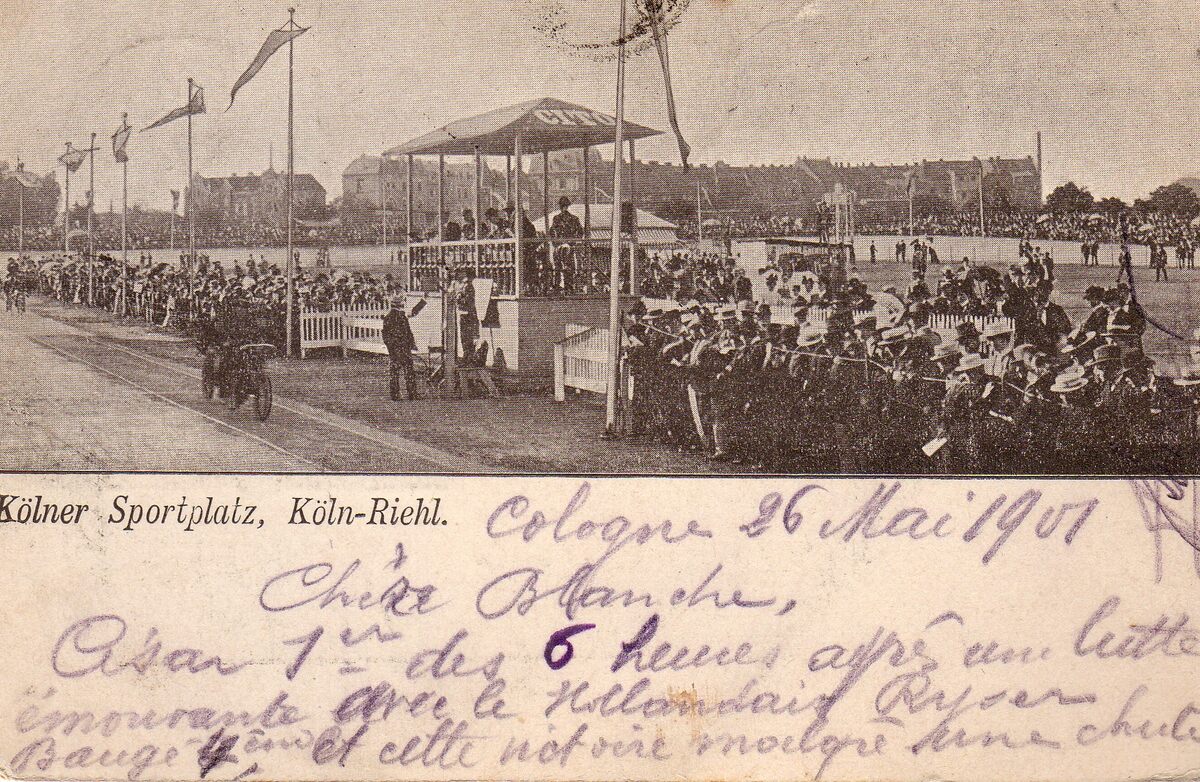 CITO
Kölner Sportplatz, Köln-Riehl.
Cologne 26 Mai 1901
Chère Blanche,
César 1er des 6 heures après une lutte
émouvante avec le Hollandais Ryser
Baugé 4ème, et cette victoire malgré une chute